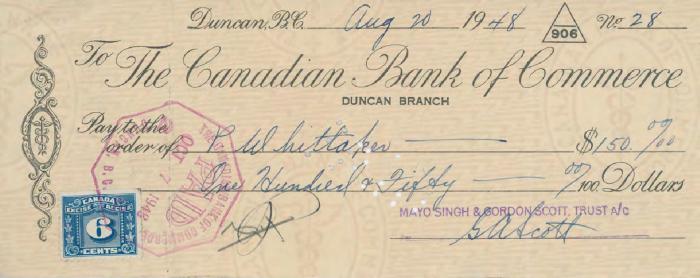 Duncan, B.C. Aug 20 1948 906 No 28
To The Canadian Bank of Commerce
DUNCAN BRANCH
Pay to the order of R Whittaker $150.00/00
One Hundred & Fifty 00/100 Dollars
MAYO SINGH & GORDON SCOTT, TRUST A/c
G A Scott
PAID
OCT 7 1948
CANADA
EXCISE
6
CENTS